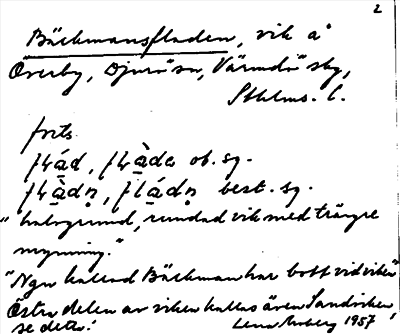 2
Bäckmansfladen, vik å
Överby, Djurö sn, Värmdö skg,
Sthlms. l.
forts.
flád, flàda ob. sg.
best. sg.
"halvgrund, rundad vik med trängre
mynning."
"Ngn kallad Bäckman har bott vid viken"
Östra delen av viken kallas även Sandviken,
se detta!
1957